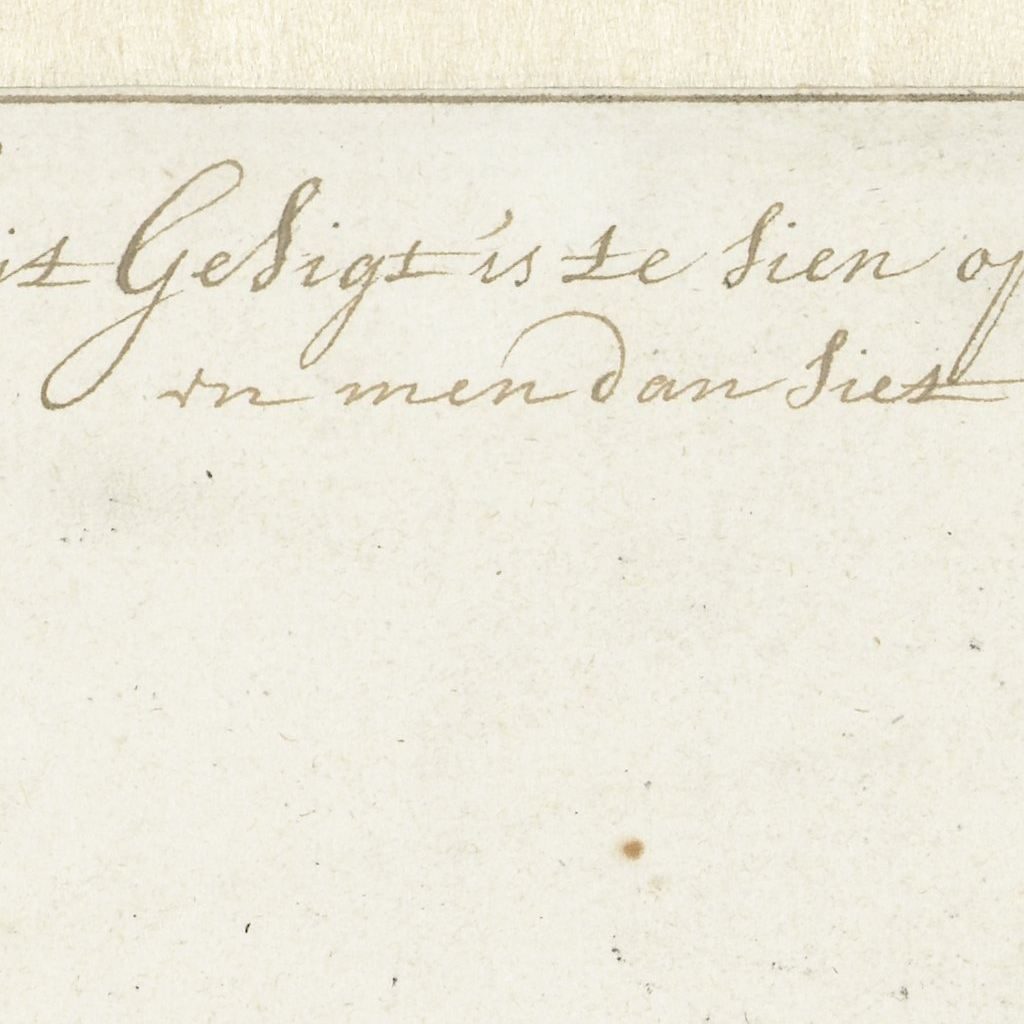 it Gesigt is te sien op
en men dan siet